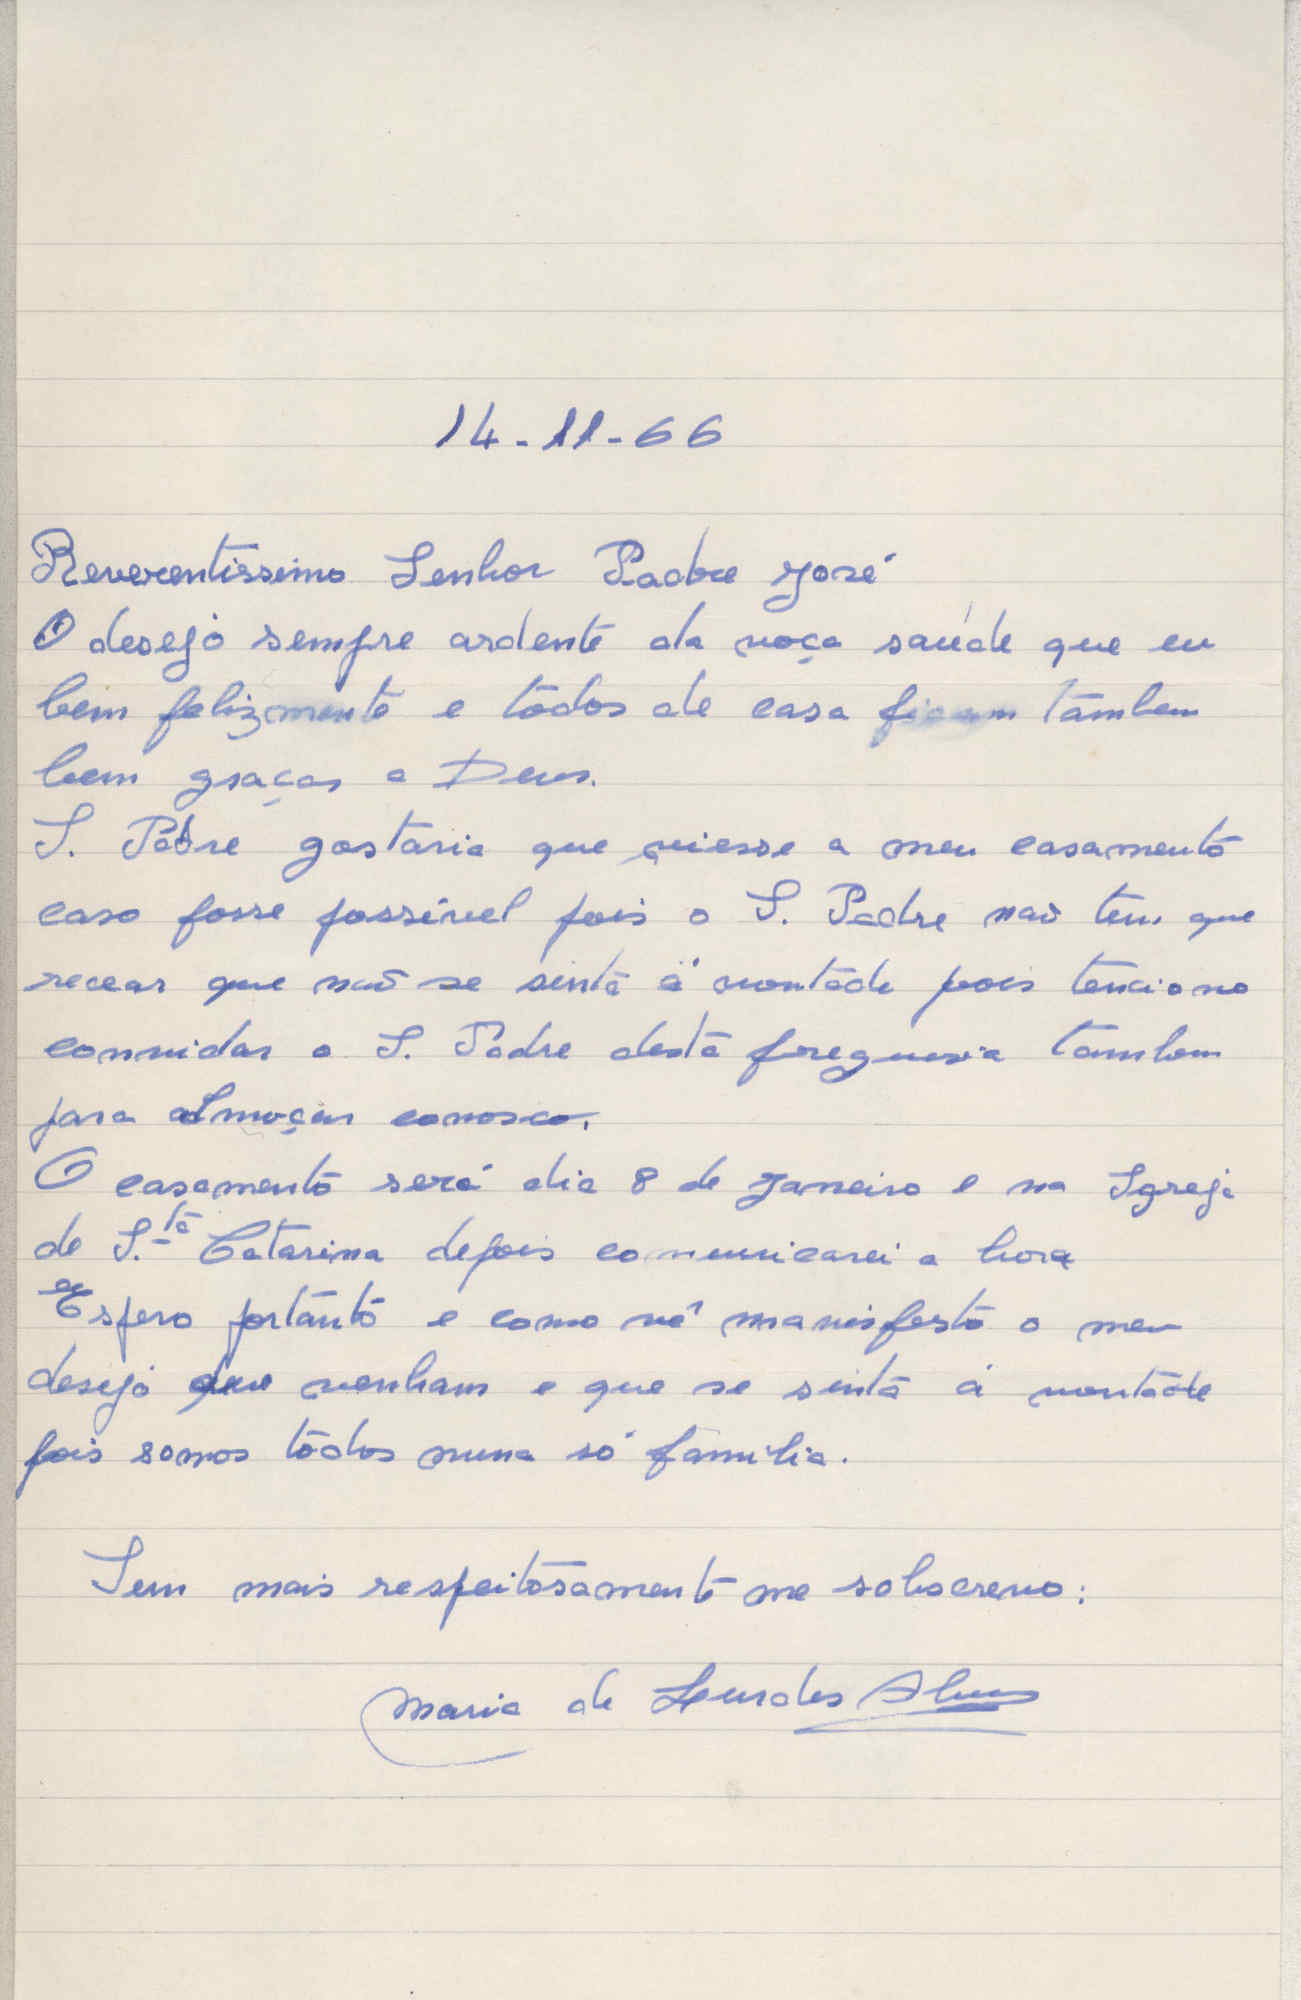 14-11-66
Reverentissimo Senhor Padre José
O desejo sempre ardente da voça saúde que eu
bem felizmente e todos de casa ficam tambem
bem graças a Deus.
S. Padre gostaria que viesse a meu casamento
caso fosse possível pois o S. Padre não tem que
recear que não se sinta á vontade pois tenciono
convidar o S. Padre desta freguesia tambem
para almoçar conosco.
O casamento será dia 8 de Janeiro e na Igreja
de S.ta Catarina depois comunicarei a hora
Espero portanto e como vê manisfesto o meu
desejo que venham e que se sinta á vontade
pois somos todos numa só familia.
Sem mais respeitosamente me sobscrevo:
Maria de Lourdes Alves